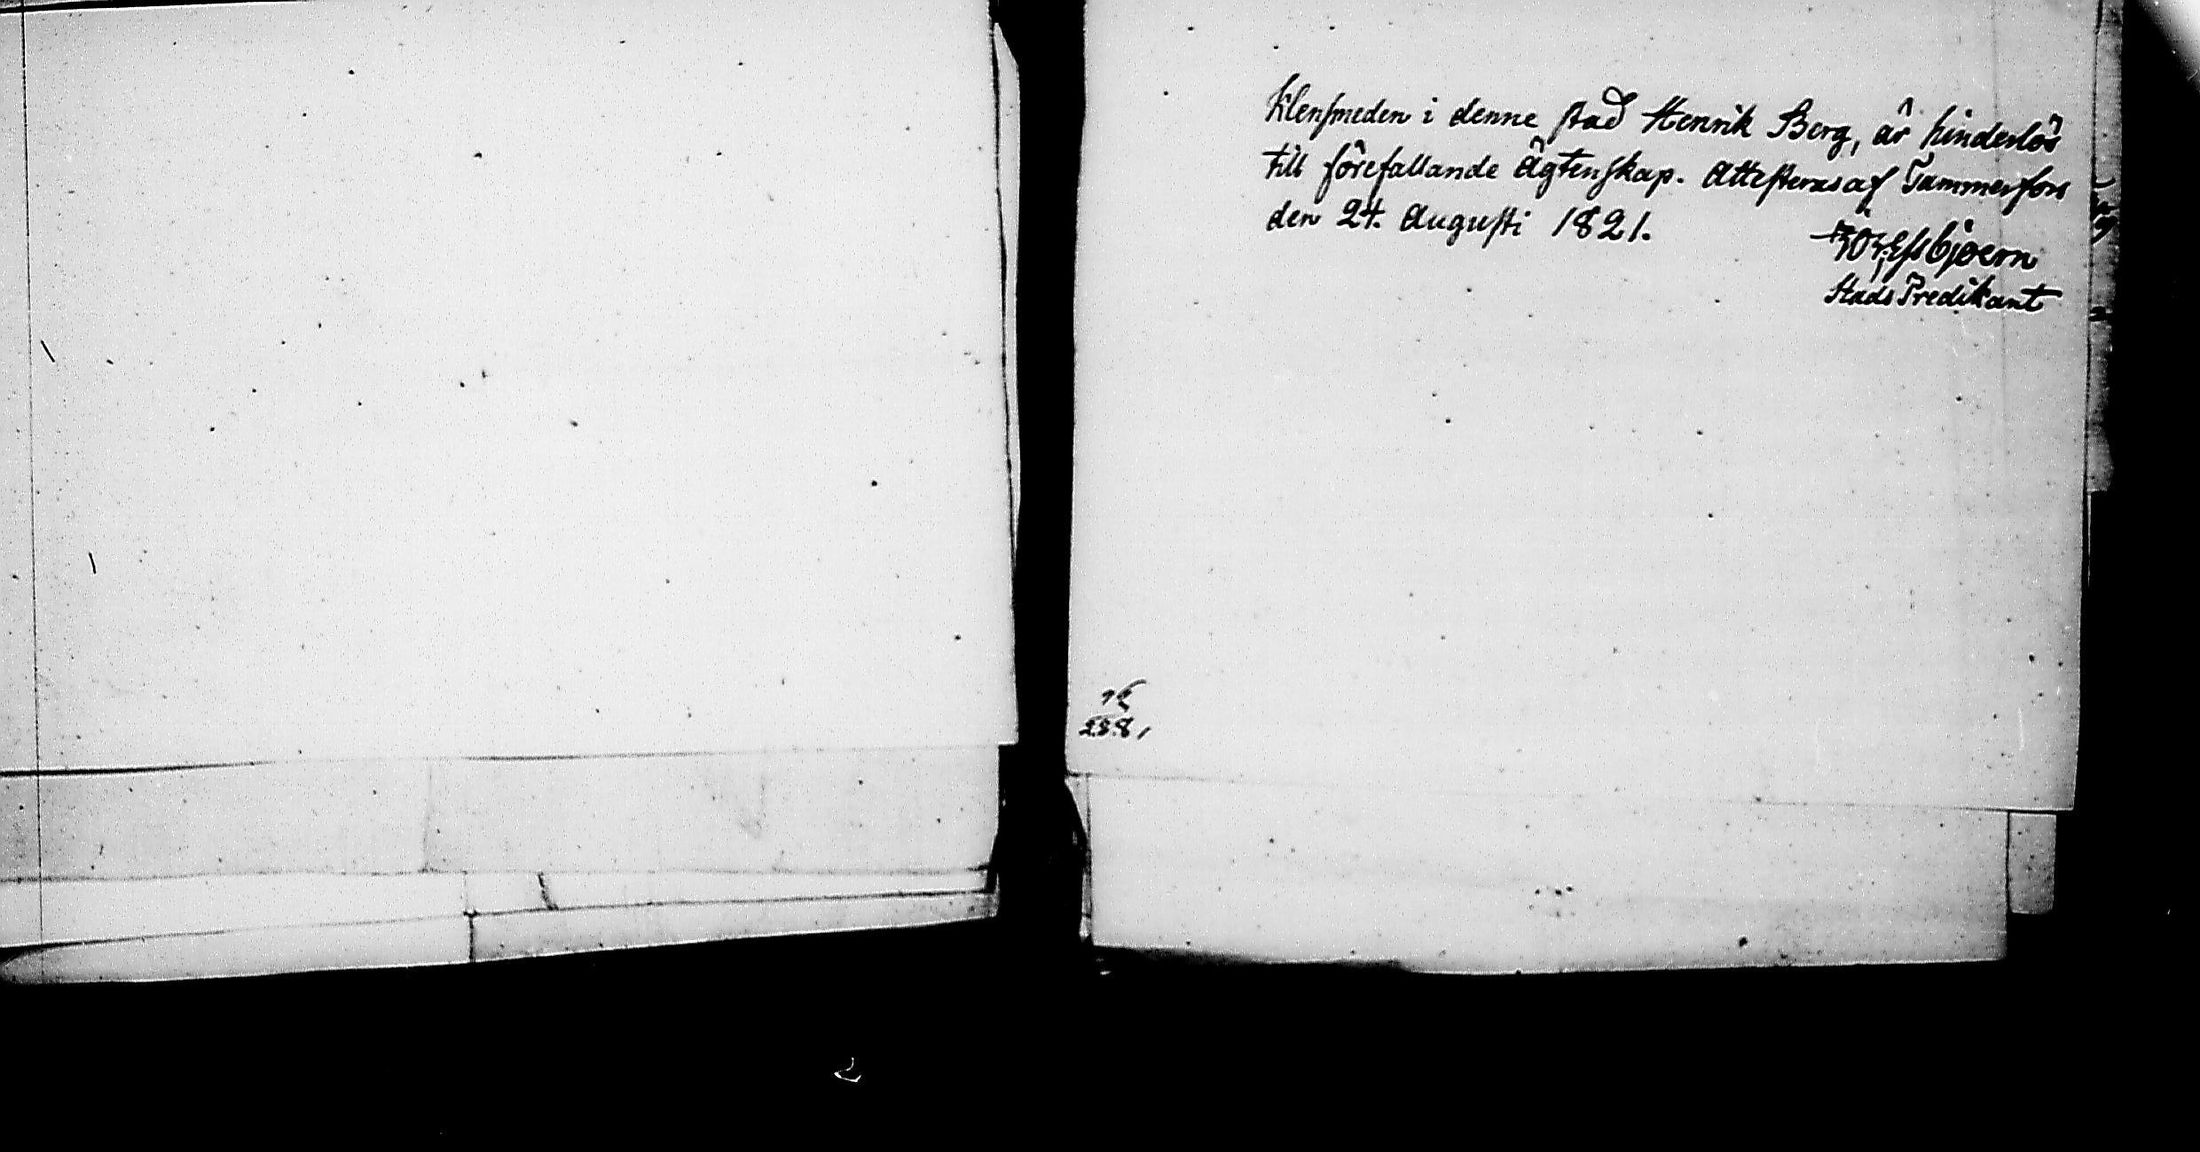 Klensmeden i denne stad Henrik Berg, är hinderlös
till förefallande Ägtenskap. Attesteras af Tammerfors
den 24. Augusti 1821.
Essbjoern
Stads Predikant